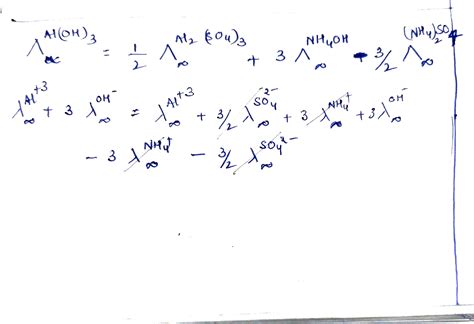 Λ∞^Al(OH)3 = 1/2 Λ∞^Al2(SO4)3 + 3 Λ∞^NH4OH - 3/2 Λ∞^(NH4)2SO4
λ∞^Al+3 + 3 λ∞^OH- = λ∞^Al+3 + 3/2 λ∞^SO4^2- + 3 λ∞^NH4+ + 3 λ∞^OH-
- 3 λ∞^NH4+ - 3/2 λ∞^SO4^2-